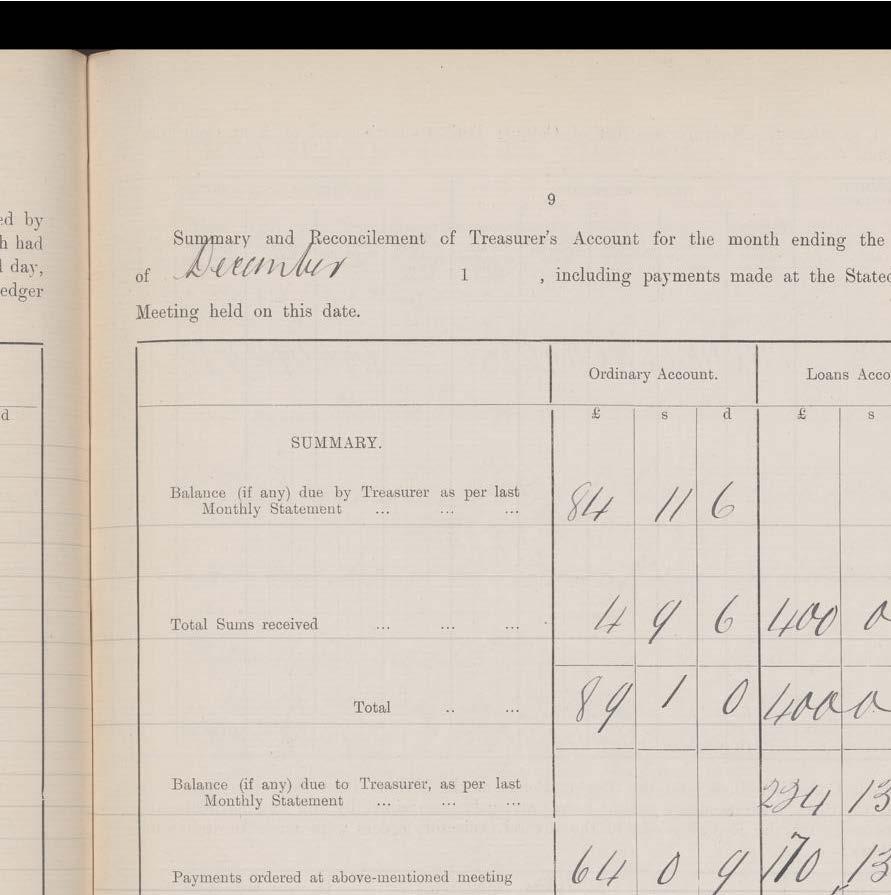 ed by
h had
l day,
edger
d
9
Summary and Reconcilement of Treasurer's Account for the month ending the
of December 1 , including payments made at the Stated
Meeting held on this date.
Ordinary Account. Loans Acco
£ s d £ s
SUMMARY.
Balance (if any) due by Treasurer as per last
Monthly Statement ... ... ... 84 11 6
Total Sums received ... ... ... 4 9 6 400 0
Total .. ... 89 1 0 400 0
Balance (if any) due to Treasurer, as per last
Monthly Statement ... ... ... 234 13
Payments ordered at above-mentioned meeting 64 0 9 170 13